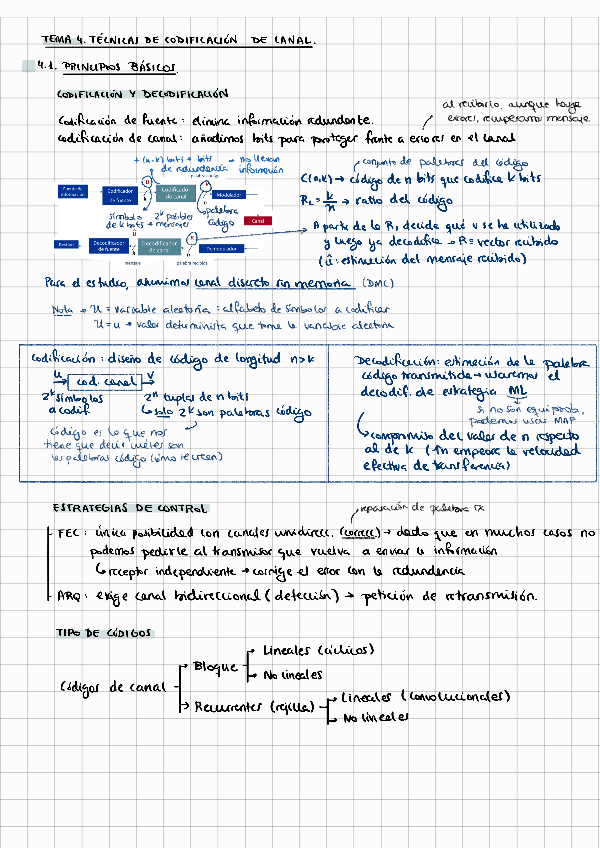 TEMA 4. TÉCNICAS DE CODIFICACIÓN DE CANAL.
4.1. PRINCIPIOS BÁSICOS.
CODIFICACIÓN Y DECODIFICACIÓN
al recibirlo, aunque haya
errores, recuperamos mensaje
Codificación de fuente: elimina información redundante.
codificación de canal: añadimos bits para proteger frente a errores en el canal
+ (n-k) bits → bits de redundancia → no llevan información
palabra código
Fuente de información
Codificador de fuente
u
Codificador de canal
v
Modulador
símbolo de k bits
2^k posibles mensajes
palabra código
Canal
Destino
Decodificador de fuente
û
Decodificador de canal
R
Demodulador
mensaje
palabra recibida
conjunto de palabras del código
C(n,k) → código de n bits que codifica k bits
k/n → ratio del código
A partir de la R, decide qué v se ha utilizado
y luego ya decodifica → R = vector recibido
(û: estimación del mensaje recibido)
Para el estudio, asumimos canal discreto sin memoria (DMC)
Nota → U = variable aleatoria: alfabeto de símbolos a codificar
U = u → valor determinista que toma la variable aleatoria
Codificación: diseño de código de longitud n>k
u → cod. canal → v
2^k símbolos a codif.
2^n tuplas de n bits
↳ solo 2^k son palabras código
Código es lo que nos
tiene que decir cuáles son
las palabras código (cómo se crean)
Decodificación: estimación de la palabra
código transmitida → usaremos el
decodif. de estrategia ML
si no son equiprob,
podemos usar MAP
compromiso del valor de n respecto
al de k (↑n empeora la velocidad
efectiva de transferencia)
ESTRATEGIAS DE CONTROL
reparación de palabra rx
FEC: única posibilidad con canales unidirecc. (correcc) → dado que en muchos casos no
podemos pedirle al transmisor que vuelva a enviar la información
↳ receptor independiente → corrige el error con la redundancia
ARQ: exige canal bidireccional (detección) → petición de retransmisión.
TIPO DE CÓDIGOS
Códigos de canal
Bloque
Lineales (cíclicos)
No lineales
Recurrentes (rejilla)
Lineales (convolucionales)
No lineales